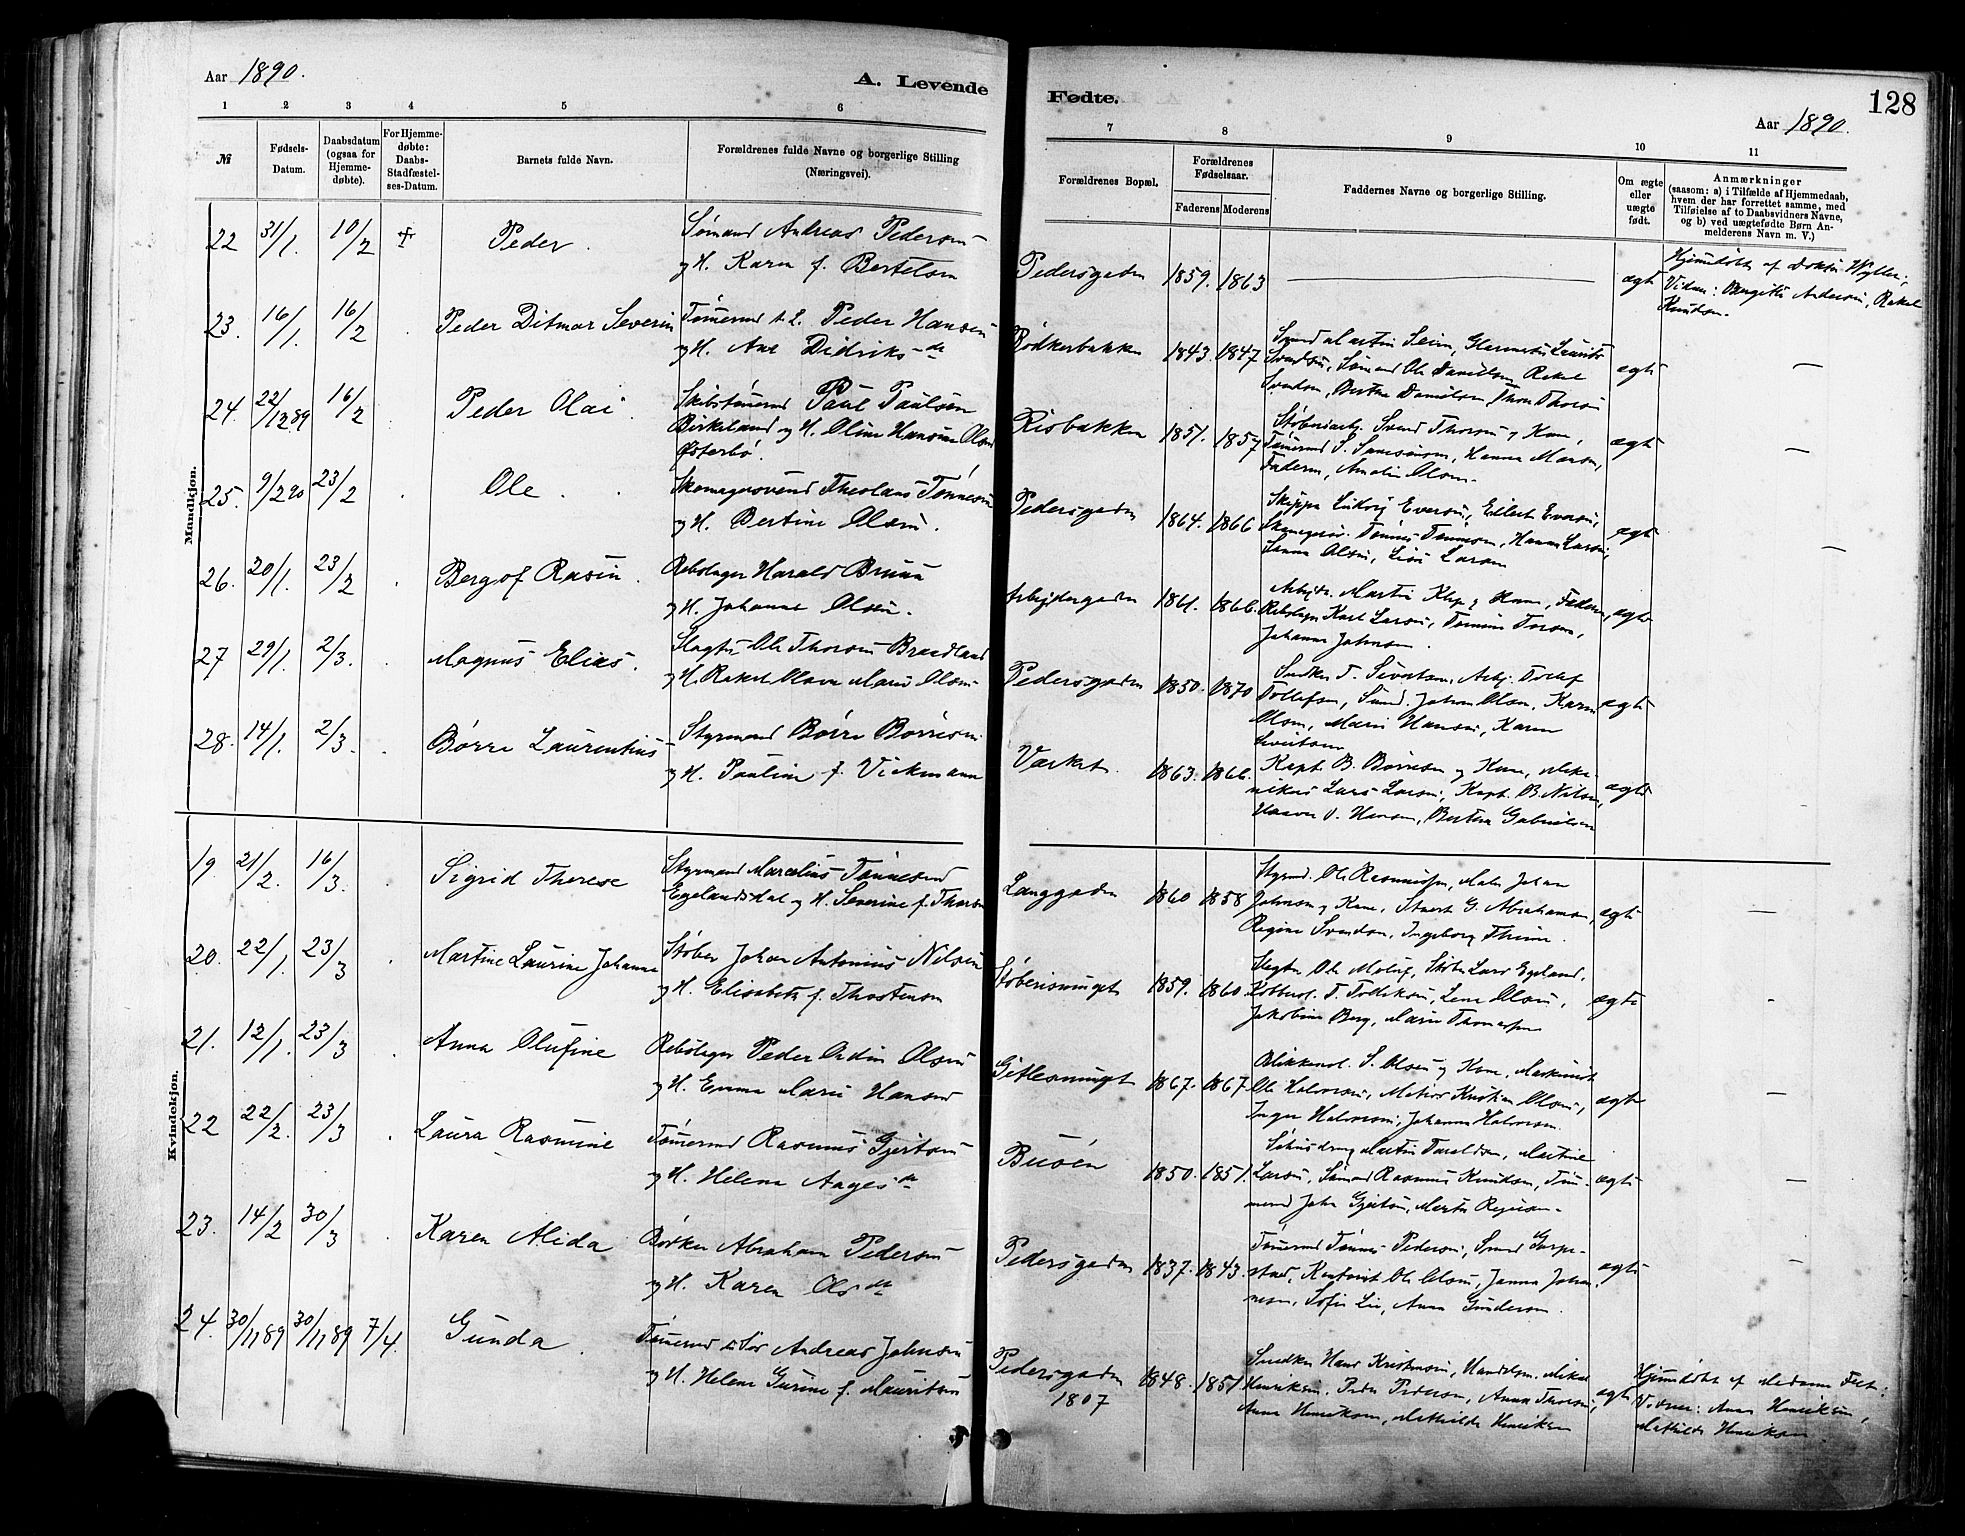 Aar 1890.
A. Levende
1 2 3 4 5 6
№
Fødsels-Datum.
Daabsdatum (ogsaa for Hjemmedøbte).
For Hjemmedøbte: Daabs-Stadfæstelses-Datum.
Barnets fulde Navn.
Forældrenes fulde Navne og borgerlige Stilling (Næringsvei).
Mandkjøn.
22 31/1. 10/2 + Peder. Sømand Andreas Pedersen
og H. Karen f. Bertelsen
23. 16/1. 16/2 Peder Ditmar Severin Tømermd Peder Hansen
og H. Ane Didriksdr
24. 22/12 89 16/2 Peder Olai. Skibstømermd Paul Paulsen
Birkeland og H. Oline Hansine Olsen
Østerbø.
25. 9/2 90 23/2 Ole. Skomagersvend Theolaus Tønnesen
og H. Bertine Olsen.
26. 20/1. 23/2 Bergof Rasin. Rebslager Harald Bruun
og H. Johanne Olsen.
27 29/1. 2/3. Magnus Elias. Slagter Ole Thorsen Braadland
og H. Rakel Olava Marie Olsen
28. 14/1. 2/3. Børre Laurentius Styrmand Børre Børresen
og H. Pauline f. Vickmann
Kvindekjøn.
19. 21/2. 16/3. Sigrid Therese Styrmand Marcelius Tønnesen
Egelandsdal og H. Severine f. Thorsen
20. 22/1. 23/3 Martine Laurine Johanne Støber Johan Antonius Nilsen
og H. Elisabeth f. Thorstensen
21. 12/1. 23/3 Anna Olufine Rebslager Peder Odin Olsen
og H. Emma Marie Hansen
22 22/2. 23/3 Laura Rasmine Tømermd Rasmus Gjertsen
og H. Helene Aagesdr
23. 14/2 30/3 Karen Alida Bødker Abraham Pedersen
og H. Karen Olsdr
24. 30/11 89 30/11 89 7/4. Gunda. Tømermd Andreas Johnsen
og H. Helene Gurine f. Mauritsen
Fødte.
128
Aar 1890.
7 8 9 10 11
Forældrenes Bopæl.
Forældrenes Fødselsaar.
Faderens Moderens
Faddernes Navne og borgerlige Stilling.
Om ægte eller uægte født.
Anmærkninger
(saasom: a) i Tilfælde af Hjemmedaab, hvem der har forrettet samme, med Tilføielse af to Daabsvidners Navne, og b) ved uægtefødte Børn Anmelderens Navn m. V.)
Pedersgaden 1859. 1863 — ægte Hjemmedøbt af Doktor Wyller; Vidner: Bergitte Andersen, Rakel Knudsen.
Bødkerbakken 1843. 1847 Smed Martin Seim, Glarmester Laurits
Svendsen, Sømand Ole Danielsen, Rakel
Svendsen, Bertha Danielsen, Thorsen ægte —
Risbakken 1851. 1857 Støberiarb. Svend Thorsen og Kone,
Tømermd S. Samsonsen, Hanna Larsen,
Faderen, Amalie Olsen. ægte —
Pedersgaden 1864. 1866 Skipper Ludvig Eversen, Eilert Eversen,
Tønnes Tønnesen, Hanna Larsen,
Olsen, Larsen ægte —
Arbeidergaden 1861. 1866. Arbeider Martin Klep og Kone, Faderen,
Rebslager Karl Larsen, Tomine Torsen,
Johanne Johnsen. ægte
Pedersgaden 1850. 1870 Snedker T. Sivertsen, Arb. Tollef
Tollefsen, Smed Johan Olsen, Karen
Olsen, Marie Hansen, Karen
Sivertsen ægte
Værket. 1863. 1866. Kapt. B. Børresen og Kone,
Lars Larsen, Kapt. B. Nilsen,
Hansen, Bertha Gabrielsen ægte —
Langgaden 1860 1858 Styrmd. Ole Rasmussen, Maler Johan
Johnsen og Kone, G. Abrahamsen,
Regine Svendsen, Ingeborg Thime. ægte —
Støberismuget 1859. 1860. Slagter Ole Moluf, Støber Lars Egeland,
T. Lene Olsen,
Jakobine Berg, Marie Thomassen ægte -
Gitlesmuget 1867. 1867. Blikkensl. S. Olsen og Kone, Maskinist
Ole Halvorsen, Kristian Olsen,
Inger Halvorsen, Johanna Halvorsen. ægte —
Buøen 1850. 1851. Martin Taraldsen, Martine
Larsen, Sømand Rasmus Knutsen, Tømermd
John Gjertsen, Marta ægte —
Pedersgaden 1837. 1843. Tømermd Tønnes Pedersen, Smed
Kontorist Ole Olsen, Janna Johannesen,
Sofie Lie, Anna Gundersen. ægte —
Pedersgaden 1807 1848. 1851 Snedker Hans Kristensen, Handelsm. Mikal
Henriksen, Peder Pedersen, Anna Thorsen,
Anna Henriksen, Mathilde Henriksen ægte Hjemmedøbt af Madame
Vidner: Anna Henriksen,
Mathilde Henriksen.